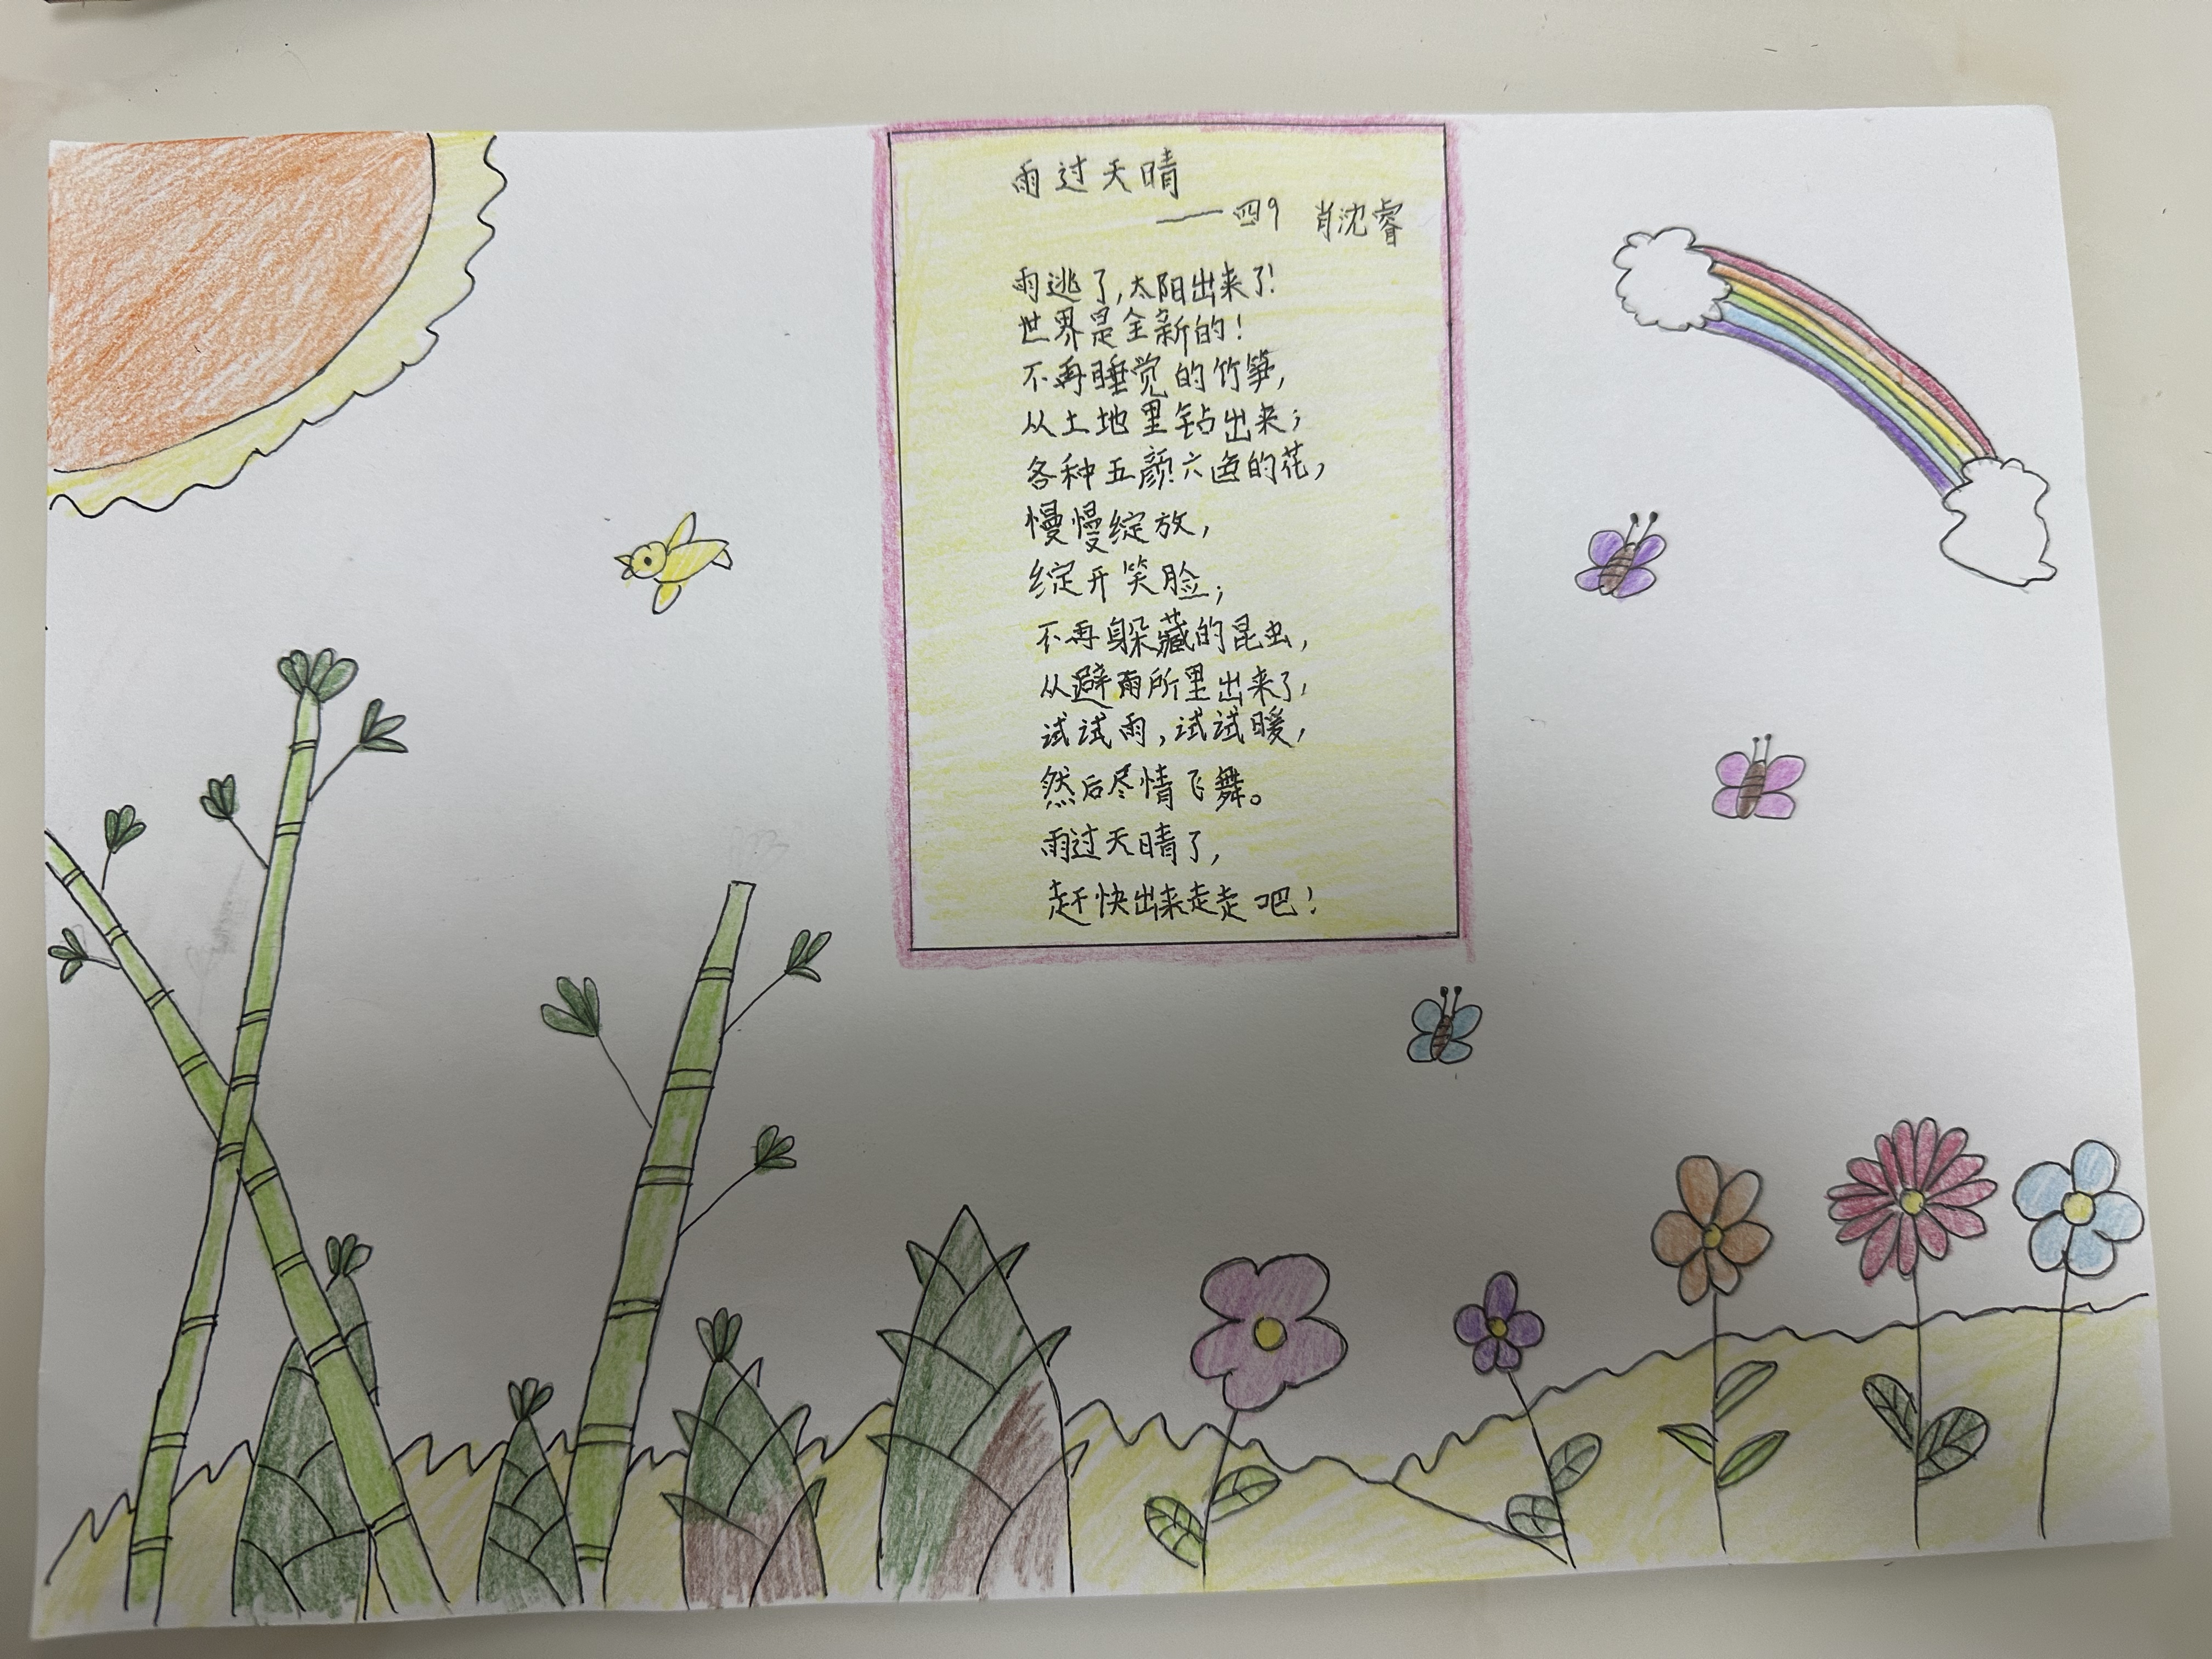 雨过天晴
——四9 肖沈睿
雨逃了,太阳出来了!
世界是全新的!
不再睡觉的竹笋,
从土地里钻出来;
各种五颜六色的花,
慢慢绽放,
绽开笑脸;
不再躲藏的昆虫,
从避雨所里出来了,
试试雨,试试暖,
然后尽情飞舞。
雨过天晴了,
赶快出来走走吧!